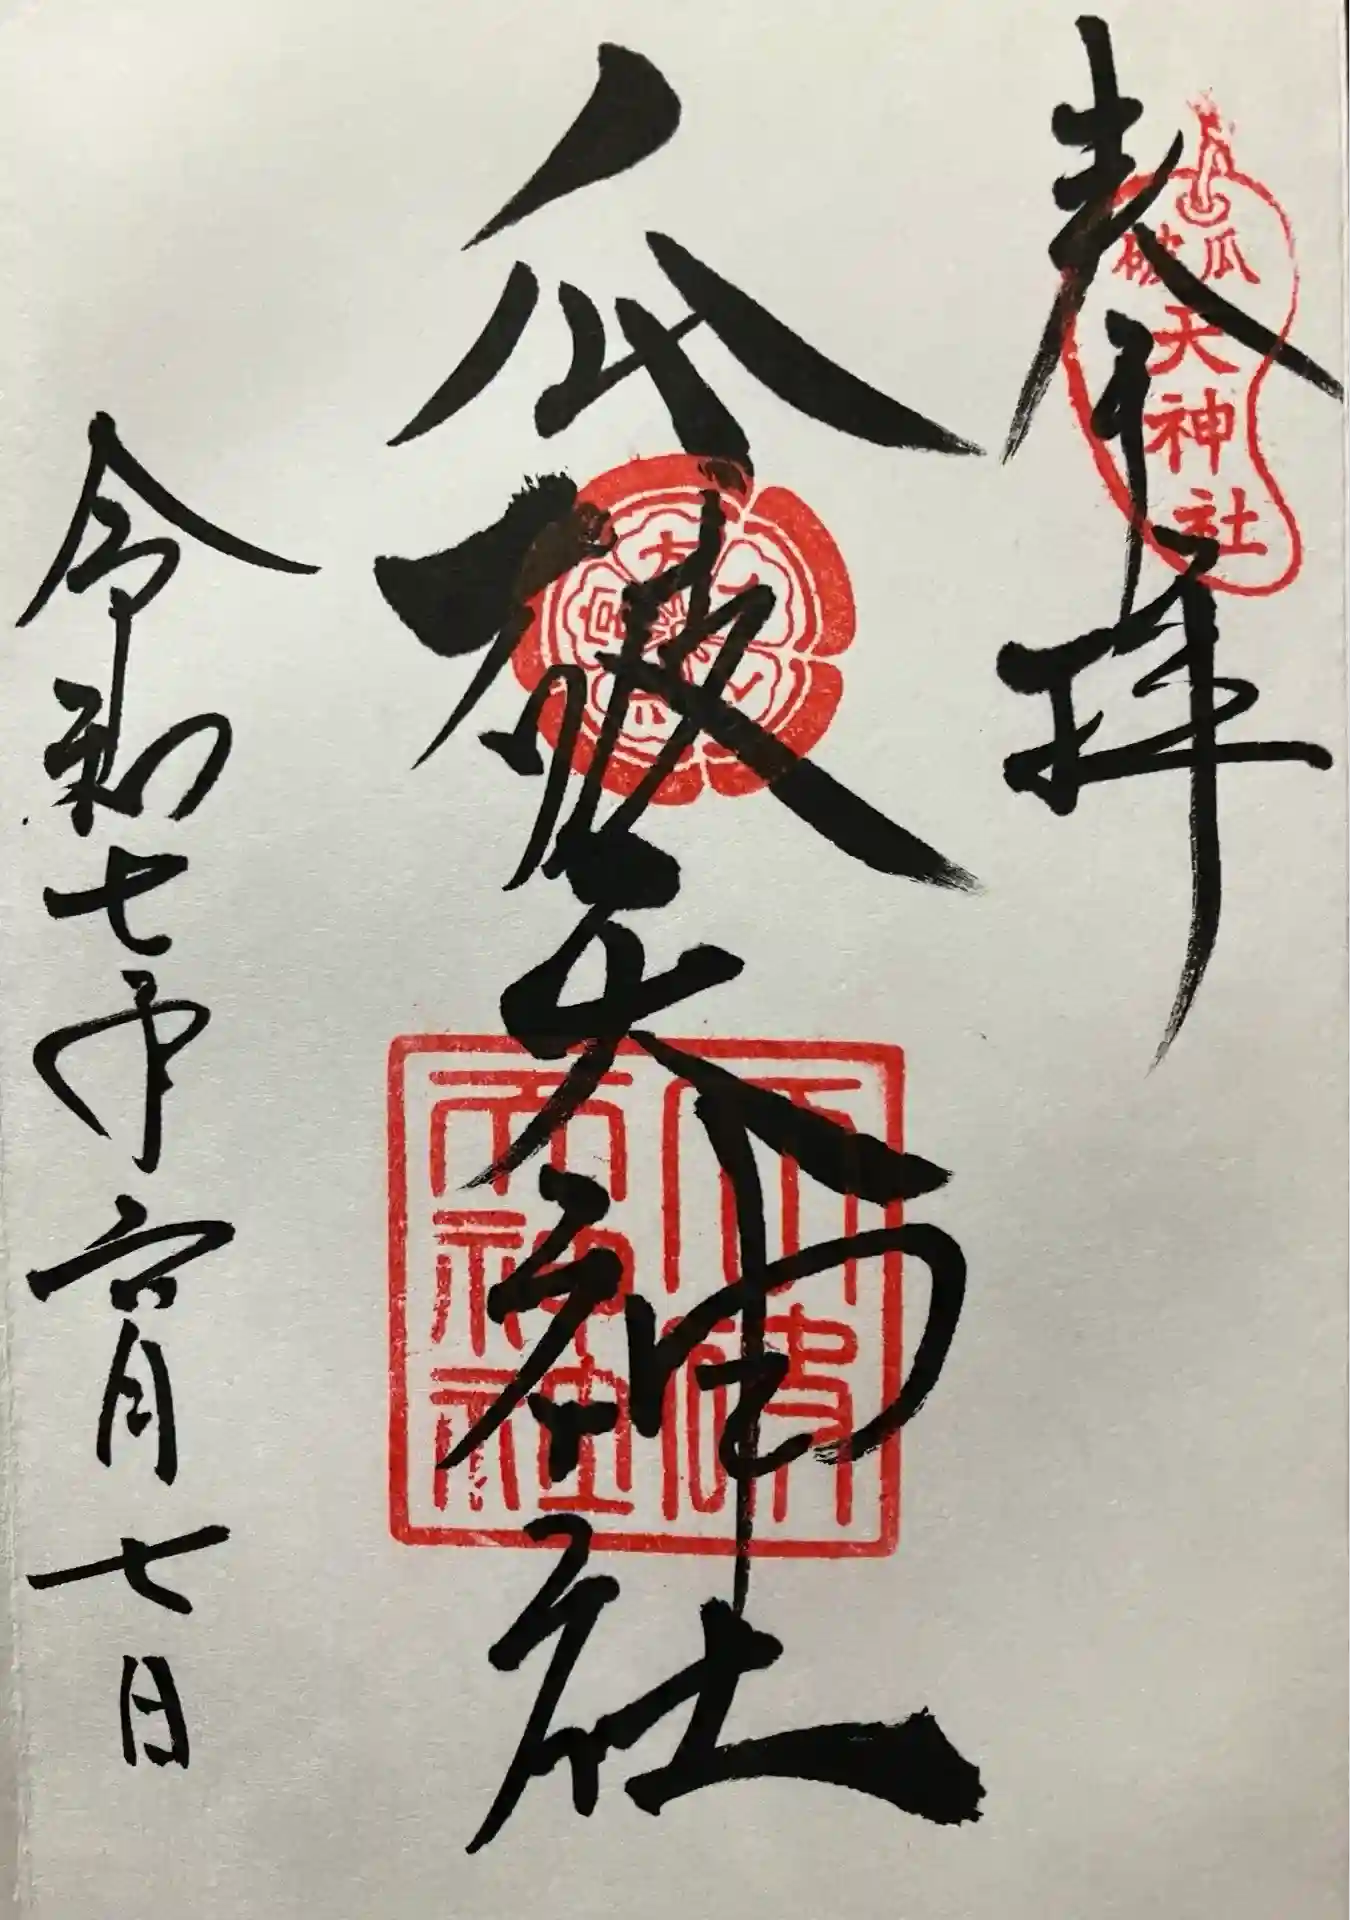 奉拝
瓜破
天
神
社
瓜破天神社
瓜破
天神社
令和七年六月七日